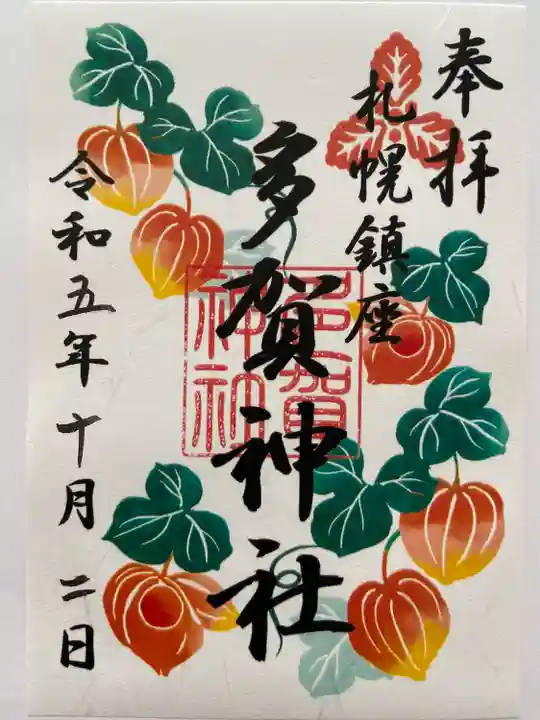 奉拝
札幌鎮座
多賀神社
多賀
神社
令和五年十月二日